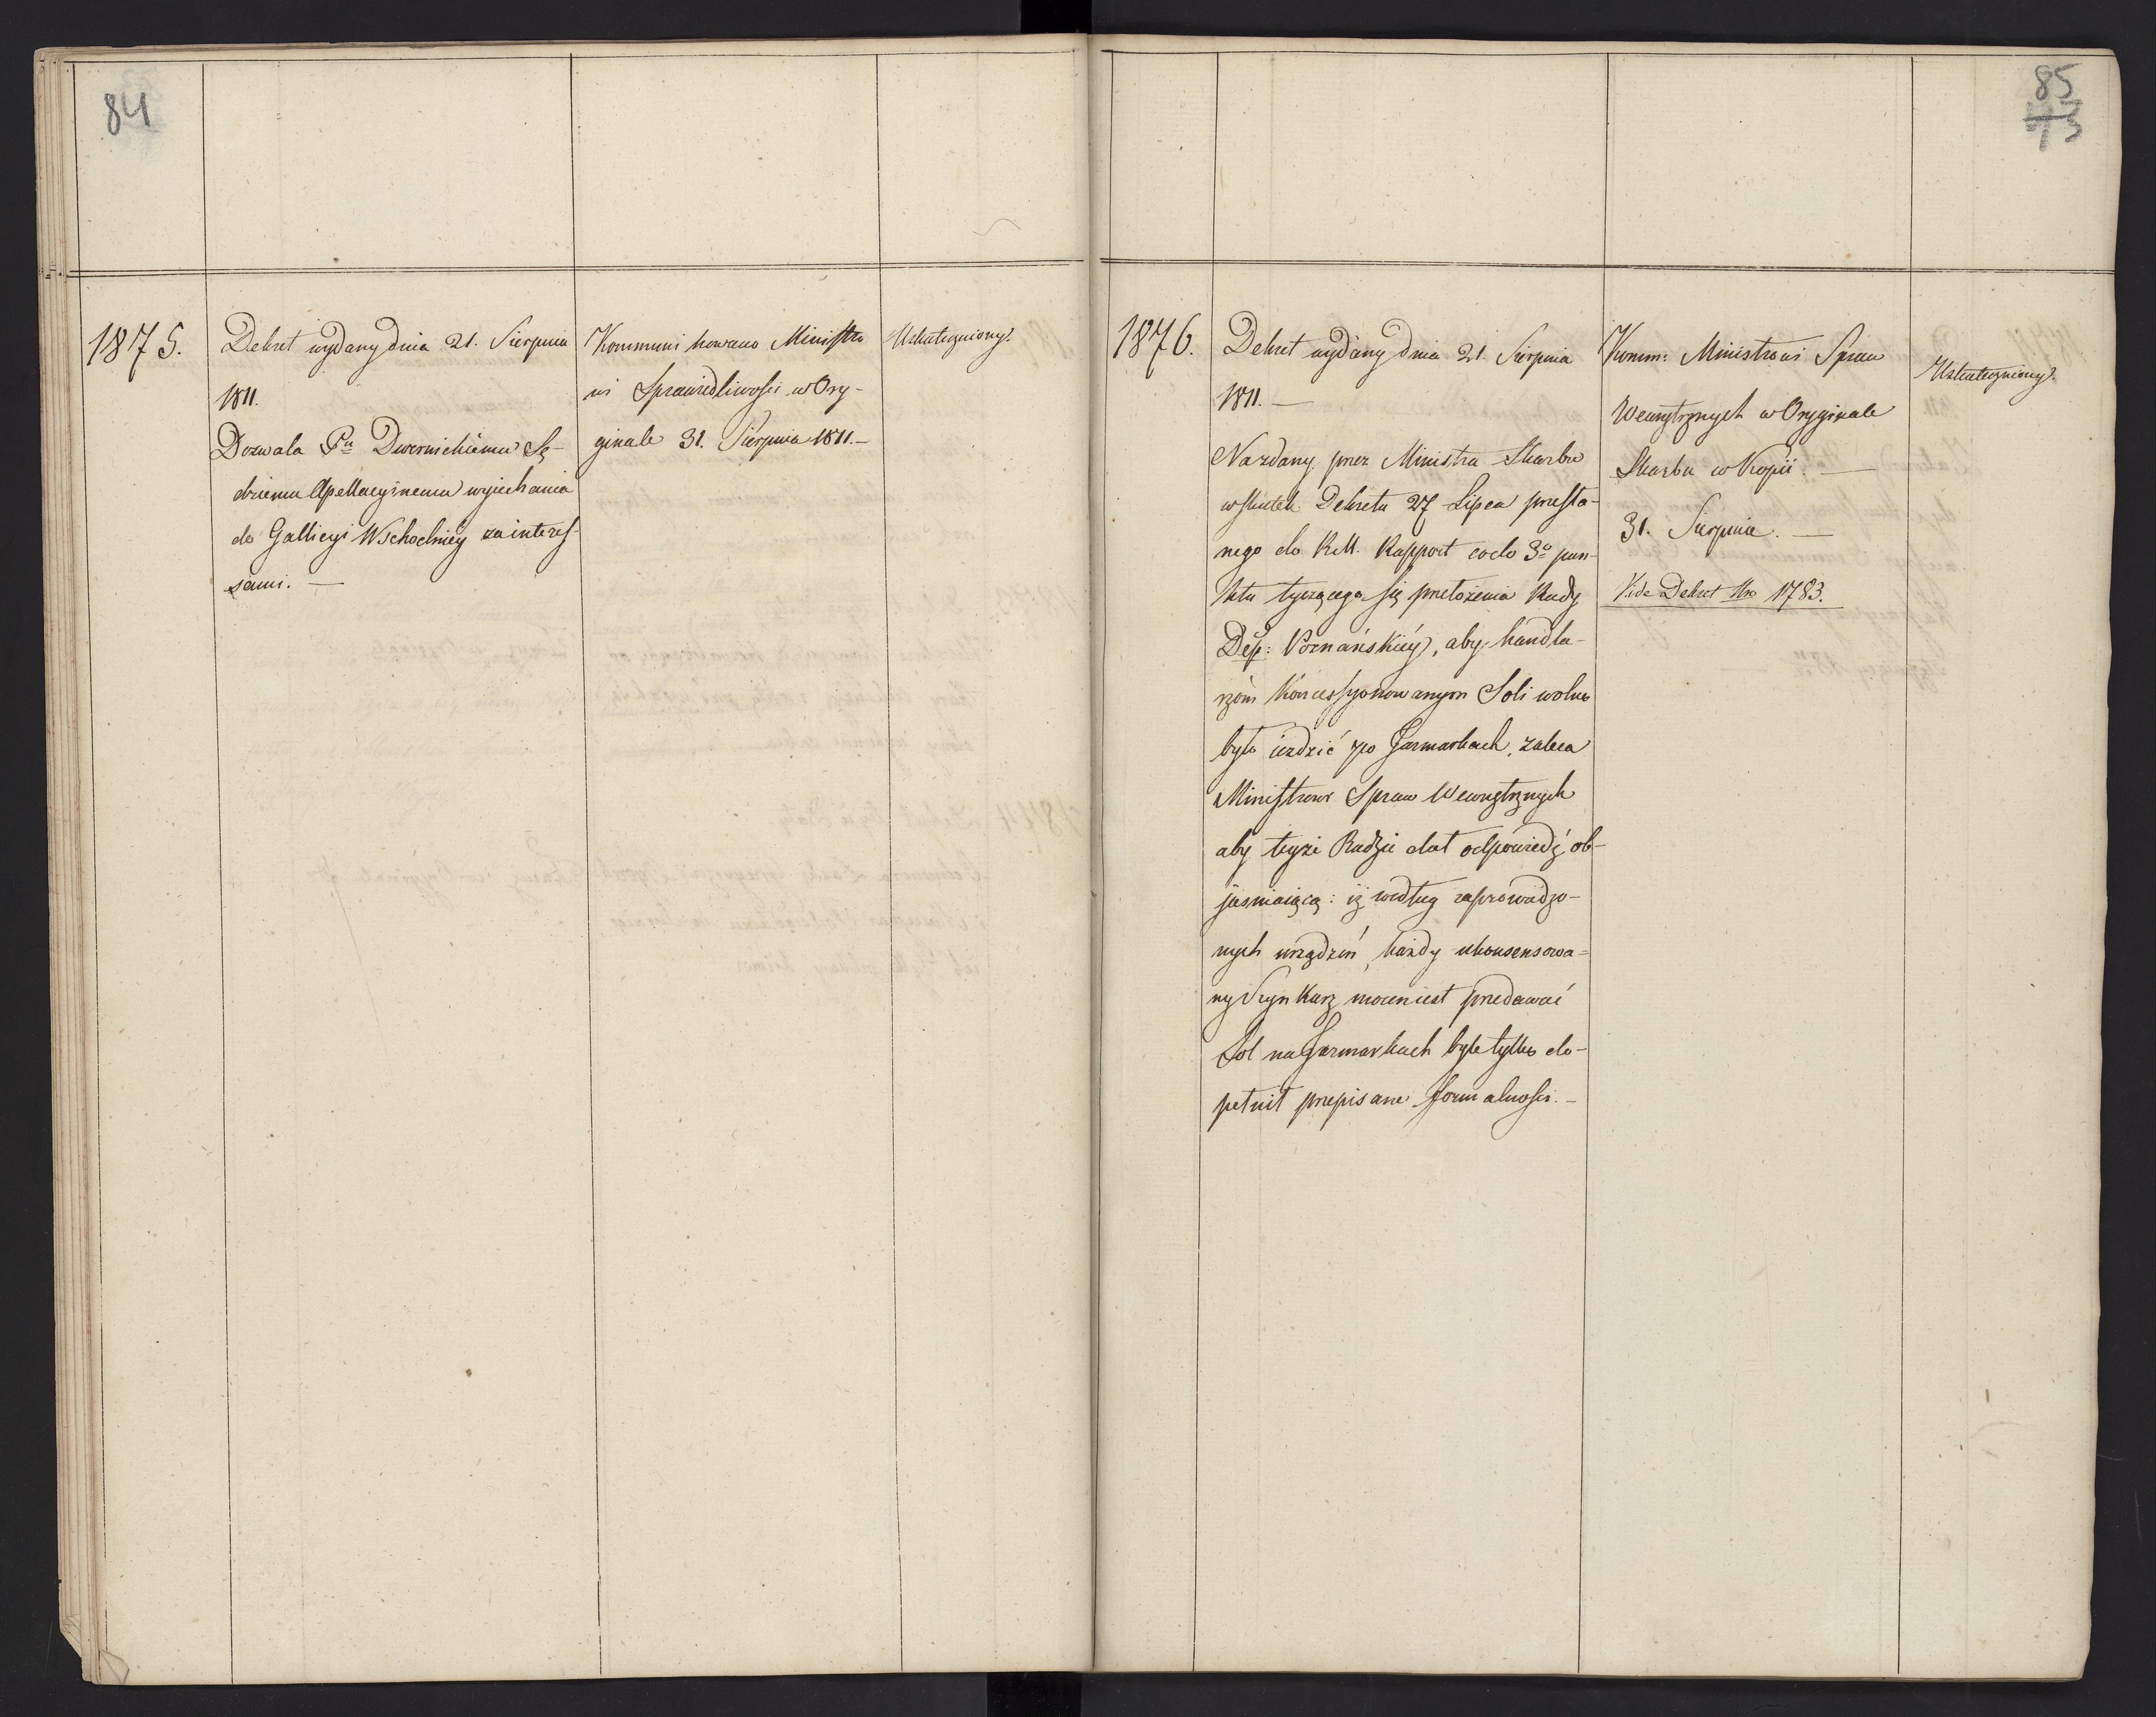 84
1875.
Dekret wydany dnia 21. Sierpnia
1811.
Dozwala Pu Dwernickiemu Sę-
dziemu Apellacyinemu wyiechania
do Gallicyi Wschodniéy za interes-
sami. —
Kommunikowano Ministro
wi Sprawiedliwości w Ory-
ginale 31. Sierpnia 1811. —
Uskuteczniony.
85
43
1876.
Dekret wydany dnia 21. Sierpnia
1811. —
Na zdany przez Ministra Skarbu
wskutek Dekretu 27 Lipca przesła-
nego do R.M. Rapport co do 3o pun-
ktu tyczącego się przełożenia Rady
Dep: Poznańskiéy, aby handla-
rzóm koncessyonowanym Soli wolno
było iezdzić po Jarmarkach, zaleca
Ministrowi Spraw Wewnętrznych
aby teyże Radzie dał odpowiedź ob-
jasniaiącą: iż według zaprowadzo-
nych urządzeń, każdy ukonsensowa-
ny Szynkarz mocen iest przedawać
Sol na Jarmarkach byle tylko do-
pełnił przepisane formalności. —
Komm: Ministrowi Spraw
Wewnętrznych w Oryginale
Skarbu w Kopii. —
31. Sierpnia. —
Vide Dekret Nro 1783.
Uskuteczniony.